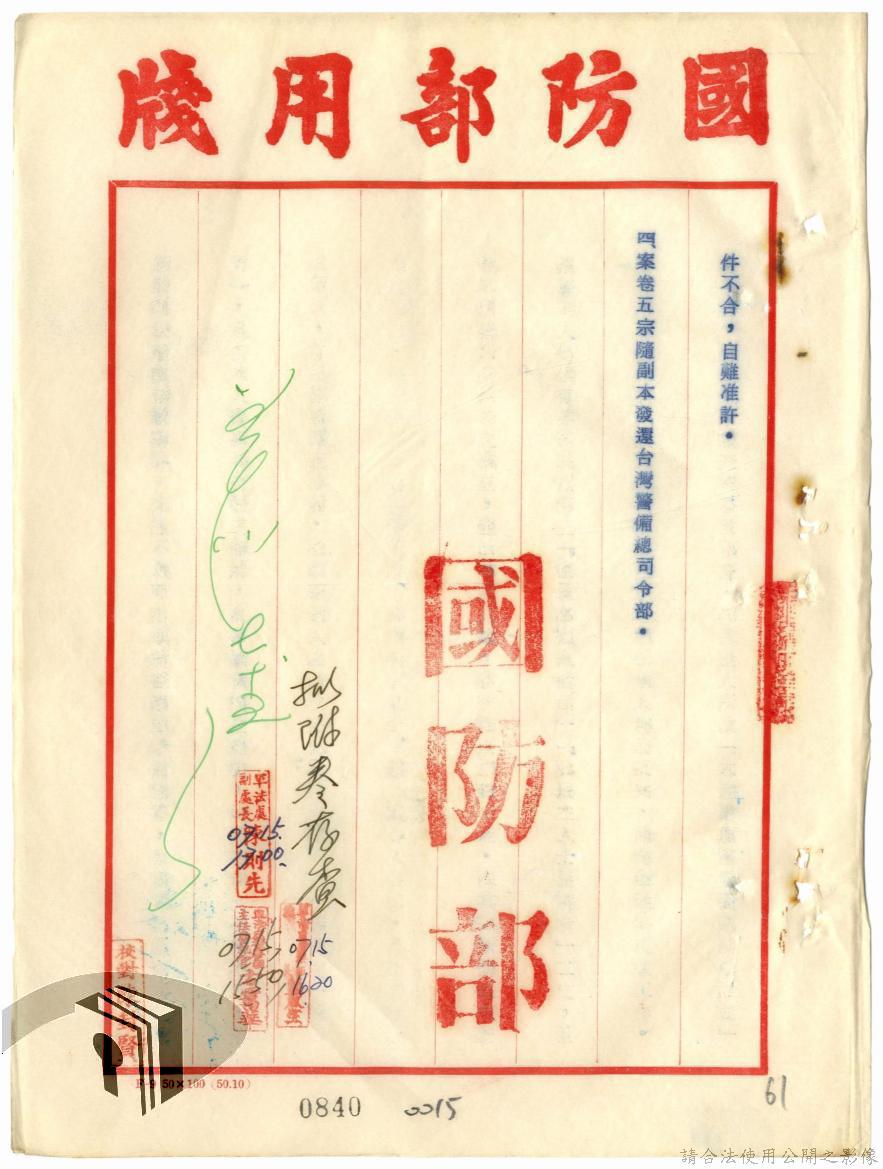 國防部用牋
件不合，自難准許。
四、案卷五宗隨副本發還台灣警備總司令部。
國防部
擬附卷存查
軍法處
副處長
0715
1700
0715
1620
0715
1550
校對
賢
F-9 50×100 (50.10)
0840
0015
61
請合法使用公開之影像